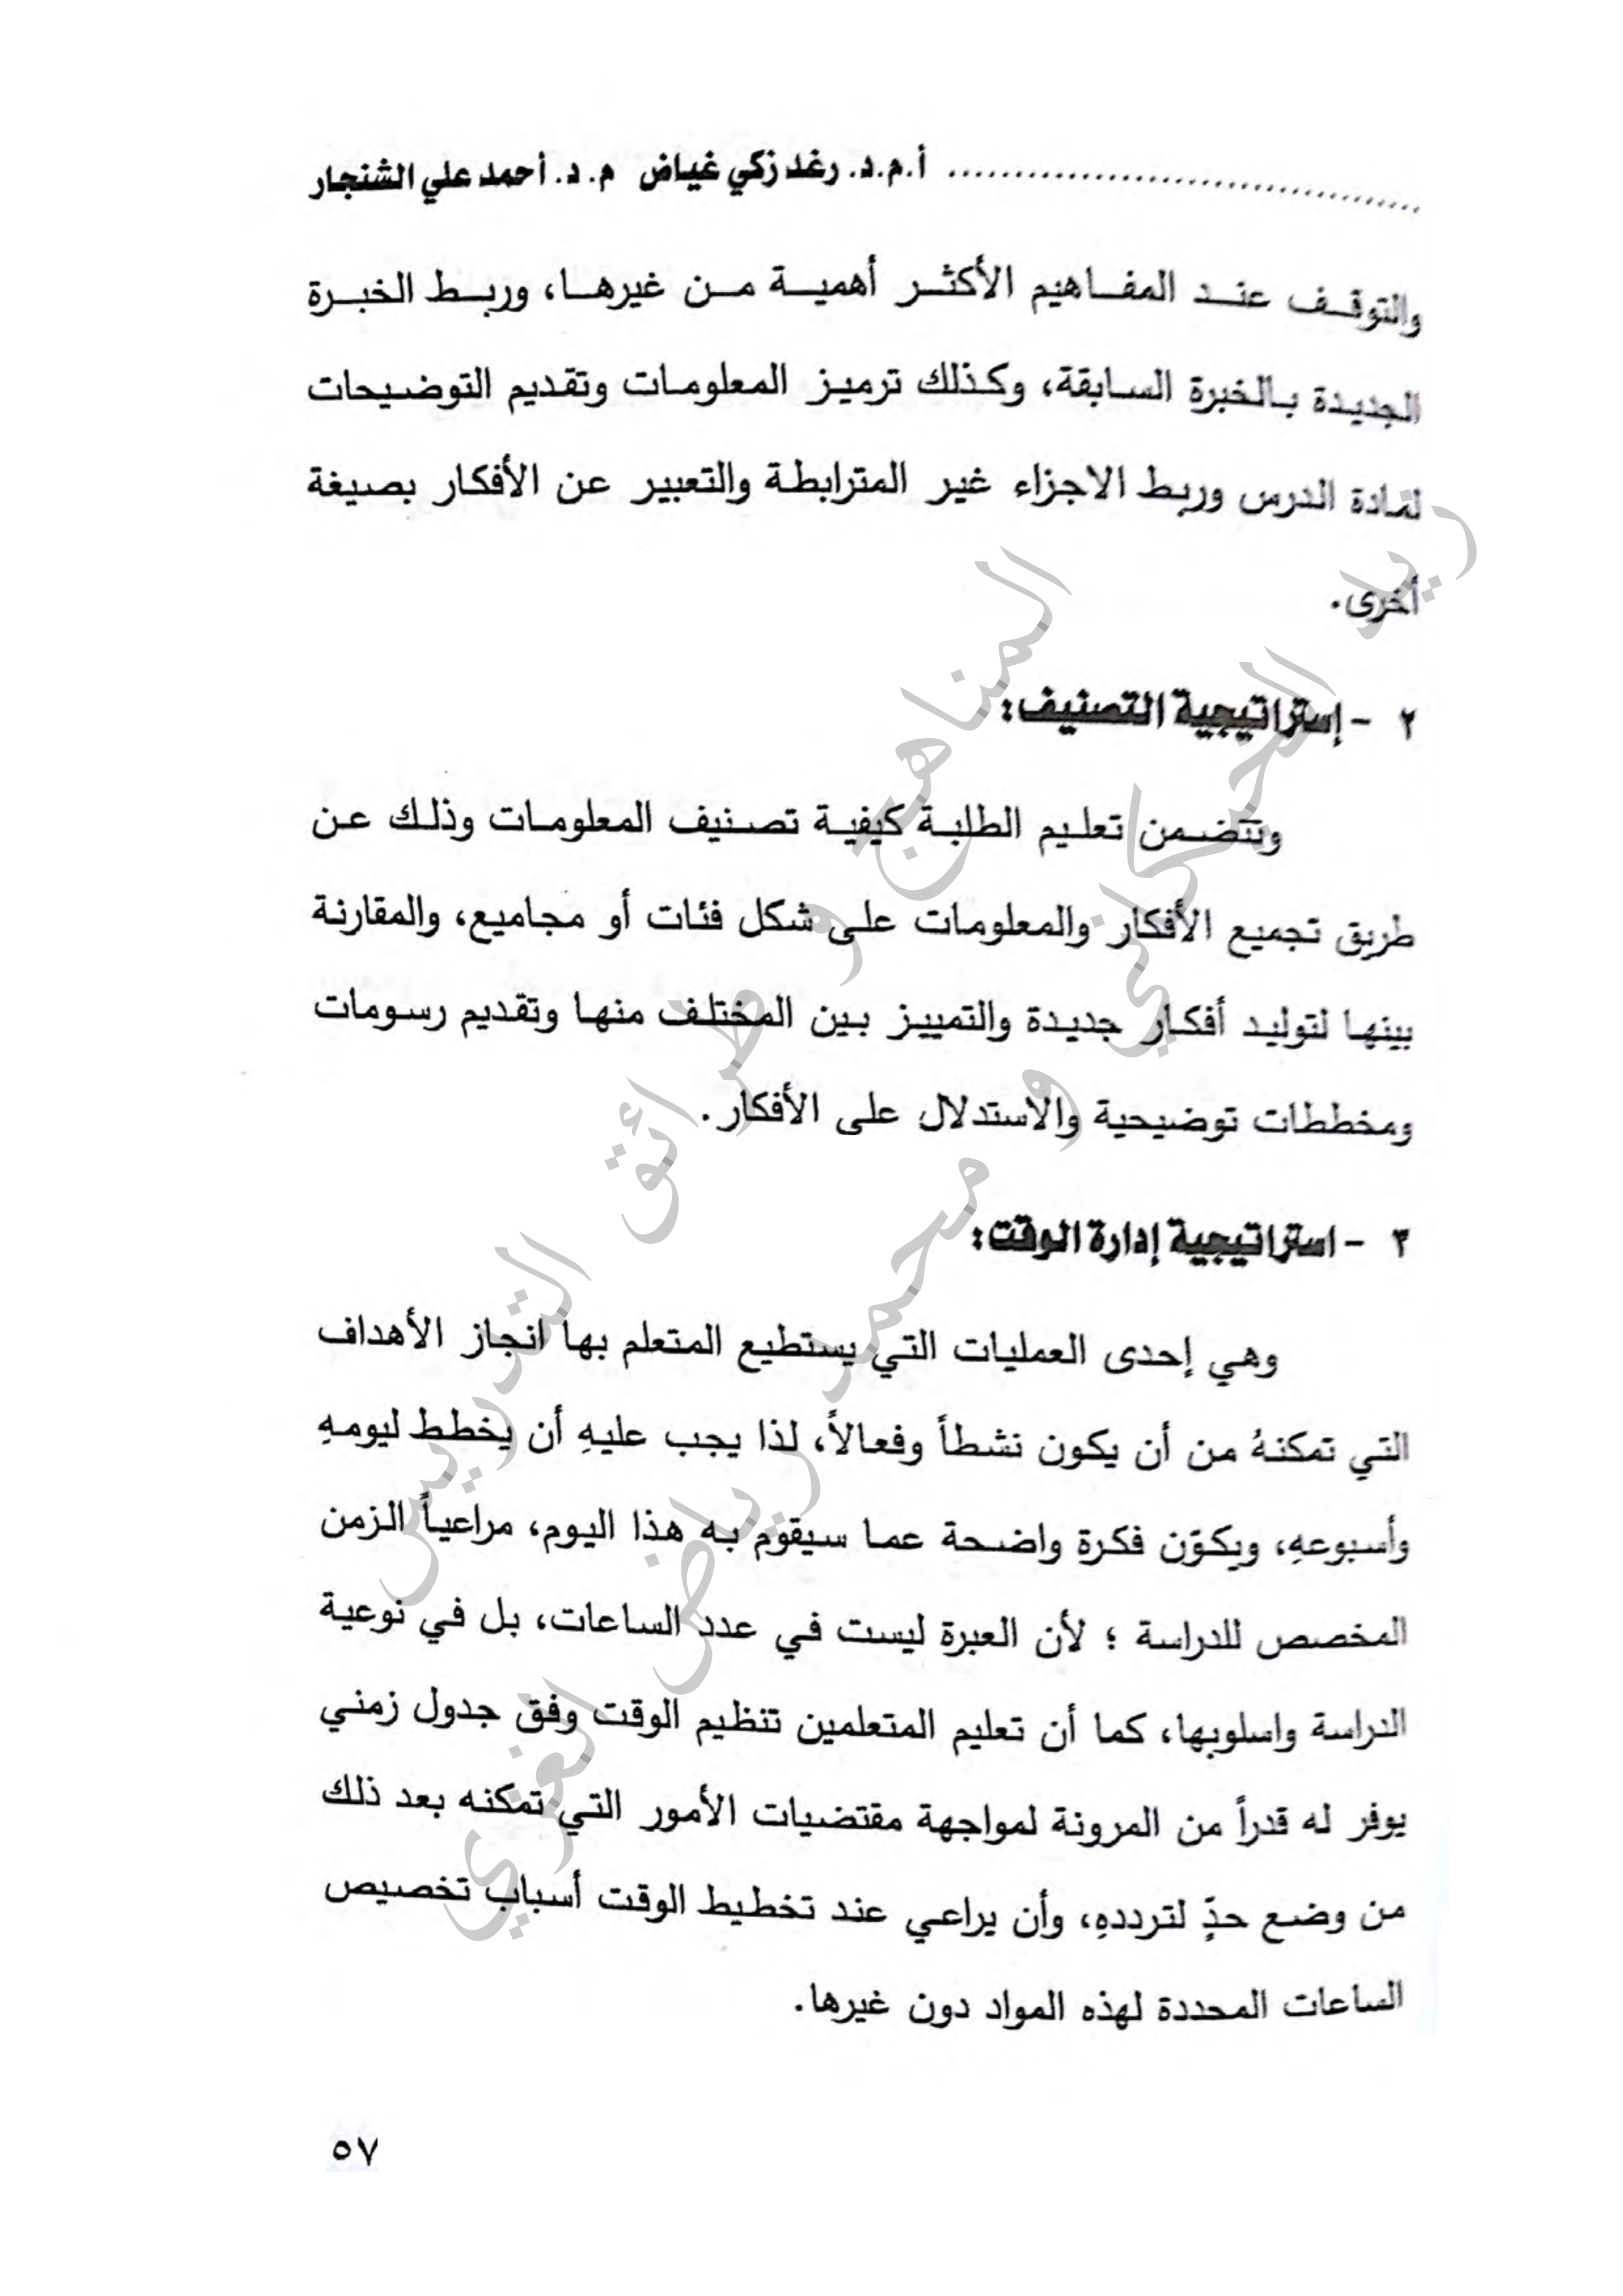 ........................................ أ.م.د. رغد زكي غياض م. د. أحمد علي الشنجار
والتوقف عند المفاهيم الأكثر أهمية من غيرها، وربط الخبرة
الجديدة بالخبرة السابقة، وكذلك ترميز المعلومات وتقديم التوضيحات
لمادة الدرس وربط الاجزاء غير المترابطة والتعبير عن الأفكار بصيغة
أخرى.
٢ - إستراتيجية التصنيف:
وتتضمن تعليم الطلبة كيفية تصنيف المعلومات وذلك عن
طريق تجميع الأفكار والمعلومات على شكل فئات أو مجاميع، والمقارنة
بينها لتوليد أفكار جديدة والتمييز بين المختلف منها وتقديم رسومات
ومخططات توضيحية والاستدلال على الأفكار.
٣ - استراتيجية إدارة الوقت:
وهي إحدى العمليات التي يستطيع المتعلم بها انجاز الأهداف
التي تمكنهُ من أن يكون نشطاً وفعالاً، لذا يجب عليهِ أن يخطط ليومهِ
وأسبوعهِ، ويكوّن فكرة واضحة عما سيقوم به هذا اليوم، مراعياً الزمن
المخصص للدراسة ؛ لأن العبرة ليست في عدد الساعات، بل في نوعية
الدراسة واسلوبها، كما أن تعليم المتعلمين تنظيم الوقت وفق جدول زمني
يوفر له قدراً من المرونة لمواجهة مقتضيات الأمور التي تمكنه بعد ذلك
من وضع حدٍّ لترددهِ، وأن يراعي عند تخطيط الوقت أسباب تخصيص
الساعات المحددة لهذه المواد دون غيرها.
٥٧
المناهج و طرائق التدريس
زيد الخيكاني و محمد رياض الغزي